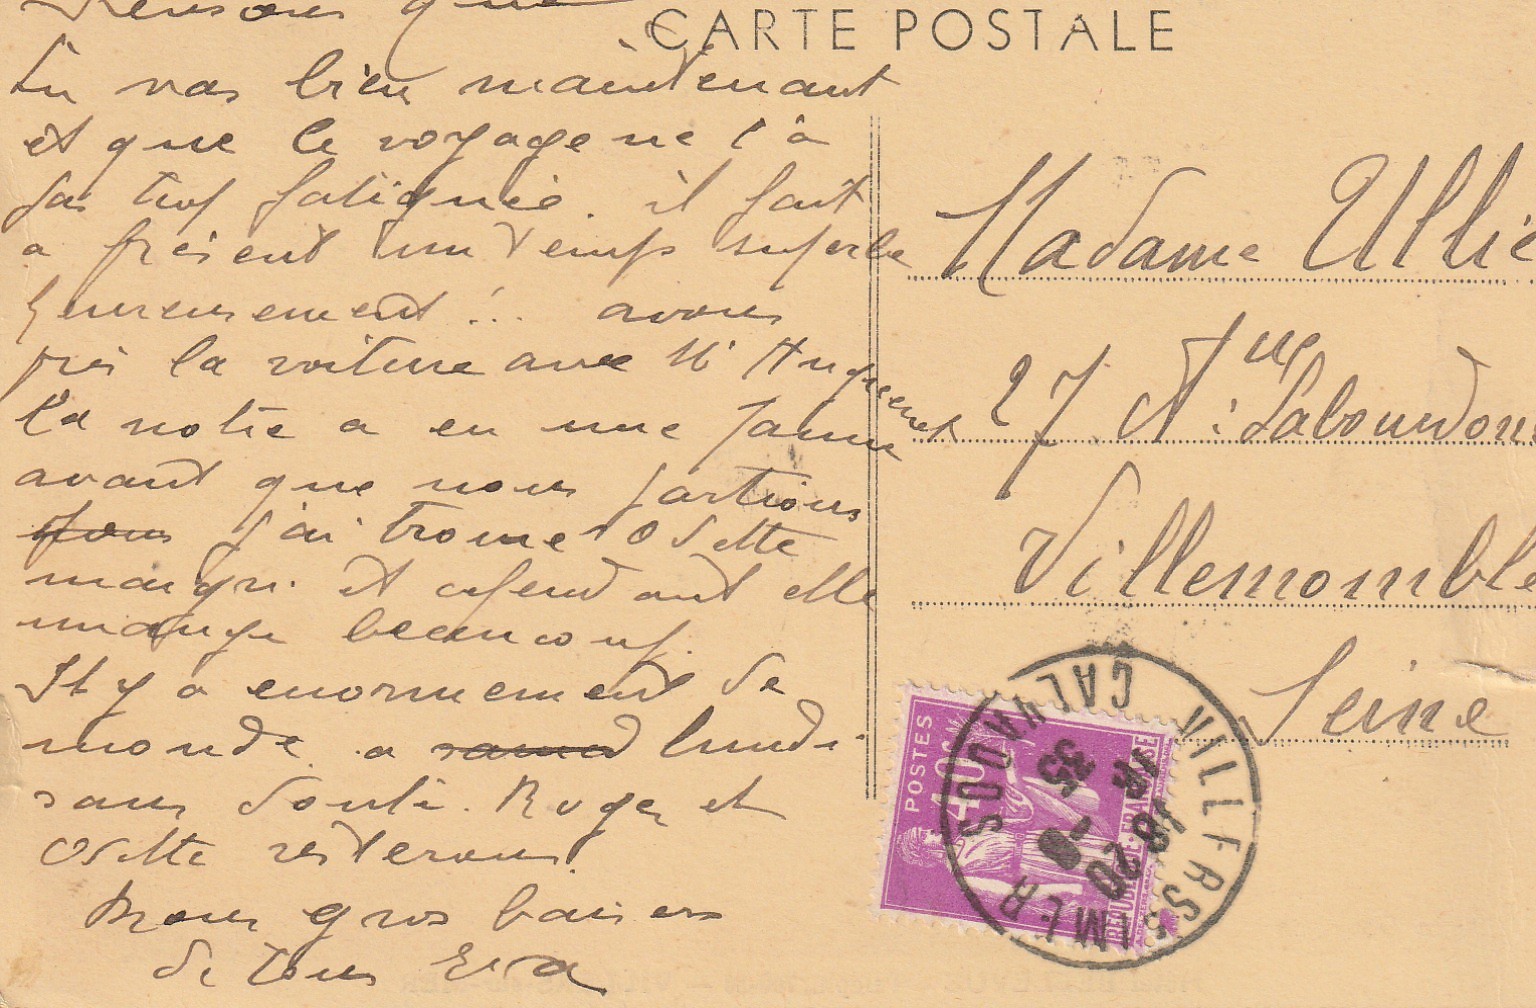 CARTE POSTALE
tu vas bien maintenant
et que le voyage ne t'à
pas trop fatiguée. il fait
a présent un temps superbe
heureusement !.. avons
pris la voiture avec Mr
La notre a eu une panne
avant que nous partions
j'ai trouvé Osette
maigri et cependant elle
mange beaucoup.
Il y a enormement de
monde. a lundi
sans Roger et
Osette resterons.
gros baisers
de tous Eva
Madame Ullie
27 Ave Labourdon
Villemomble
Seine
POSTES
40c
REPUBLIQUE FRANÇAISE
VILLERS S MER
CALVADOS
18
20 -8
35